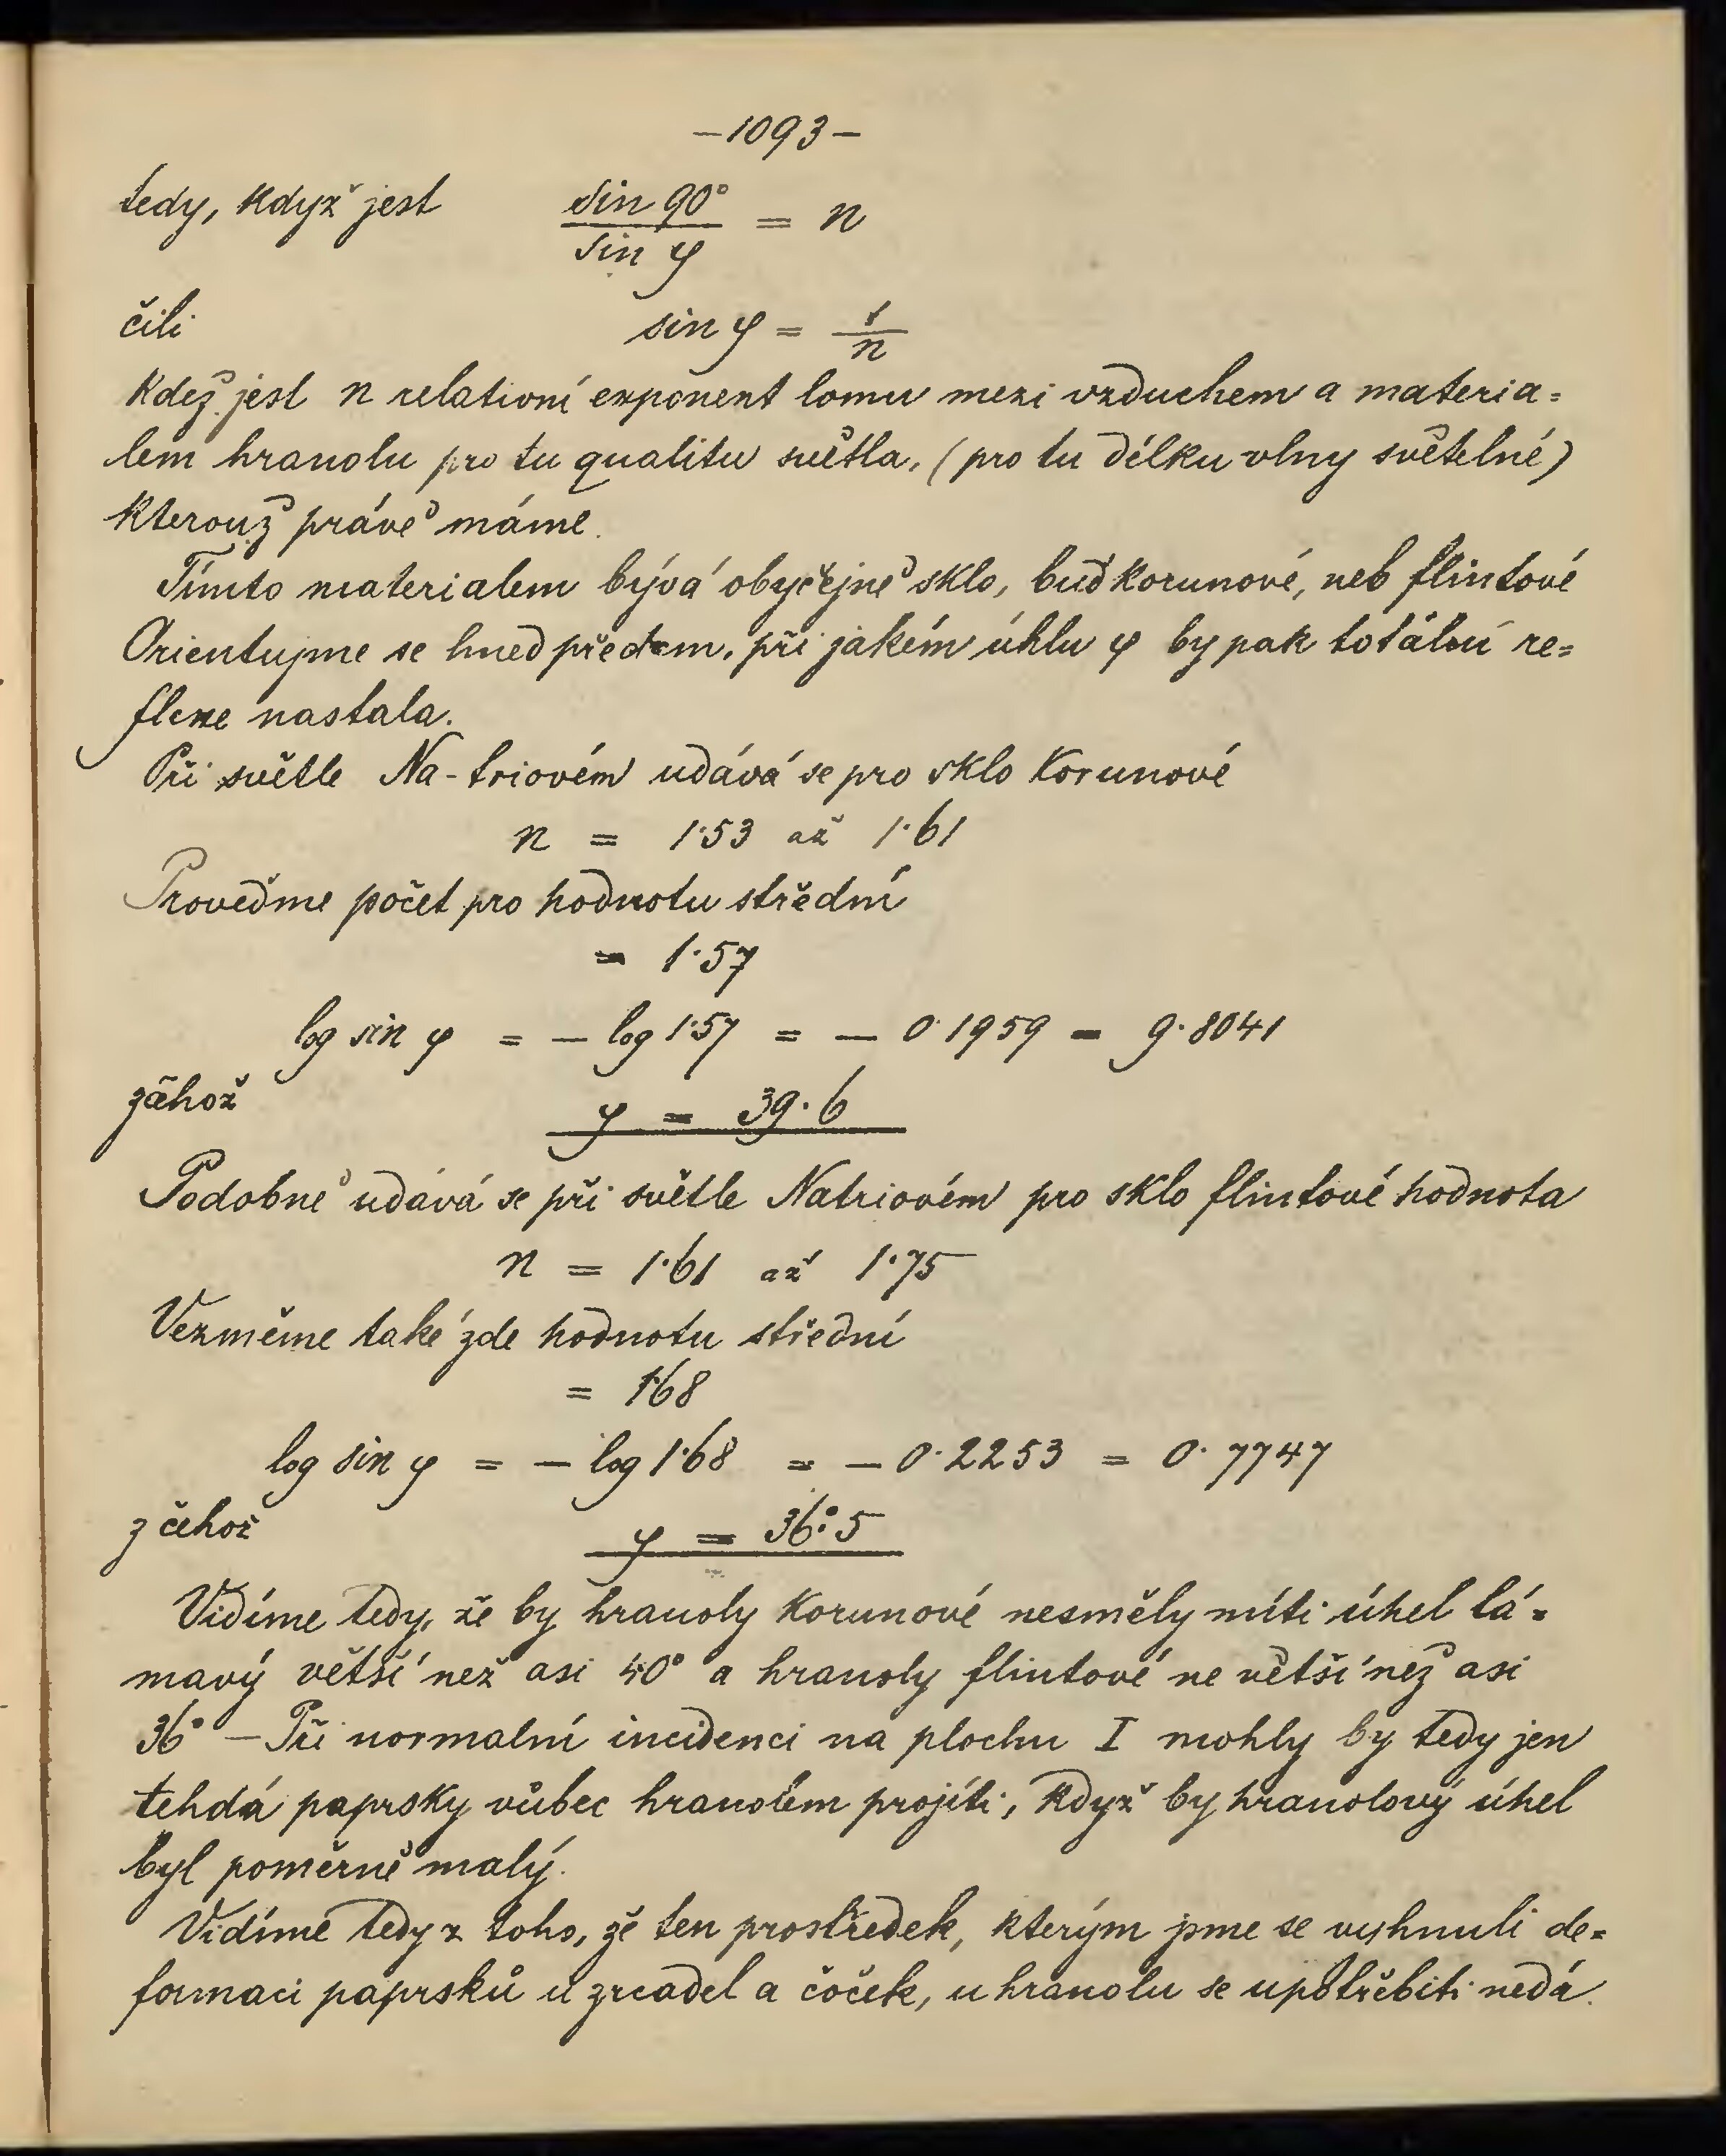 –1093–
tedy, když jest sin 90° / sin φ = n
čili sin φ = 1/n
kdež jest n relativní exponent lomu mezi vzduchem a materia=
lem hranolu pro tu qualitu světla, (pro tu délku vlny světelné)
kterouž právě máme.
Tímto materialem bývá obyčejně sklo, buď korunové, neb flintové
Orientujme se hned předem, při jakém úhlu φ by pak totální re=
flexe nastala.
Při světle Na-triovém udává se pro sklo korunové
n = 1·53 až 1·61
Proveďme počet pro hodnotu střední
= 1·57
log sin φ = – log 1·57 = – 0·1959 = 9·8041
zčehož φ = 39·6
Podobně udává se při světle Natriovém pro sklo flintové hodnota
n = 1·61 až 1·75
Vezměme také zde hodnotu střední
= 1·68
log sin φ = – log 1·68 = – 0·2253 = 0·7747
z čehož φ = 36°·5
Vidíme tedy, že by hranoly korunové nesměly míti úhel lá=
mavý větší než asi 40° a hranoly flintové ne větší než asi
36° – Při normalní incidenci na plochu I mohly by tedy jen
tehdá paprsky vůbec hranolem projíti, když by hranolový úhel
byl poměrně malý.
Vidíme tedy z toho, že ten prostředek, kterým jsme se vyhnuli de=
formaci paprsků u zrcadel a čoček, u hranolu se upotřebiti nedá.